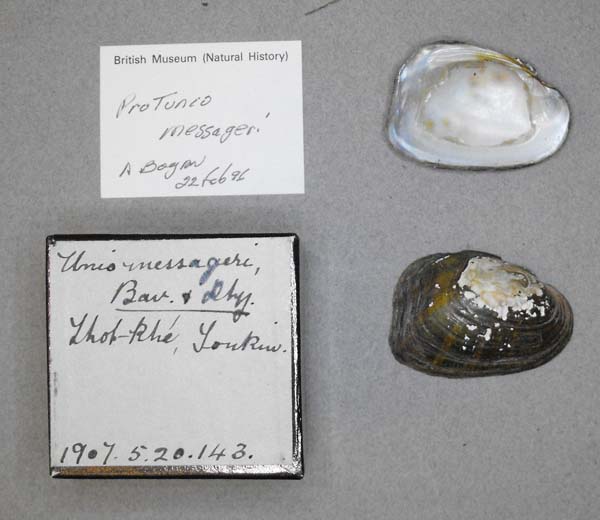 British Museum (Natural History)
ProTunio
messageri
A Bogan
22 Feb 96
Unio messageri,
Bav. & Dtz.
That-Khé, Tonkin.
1907.5.20.143.